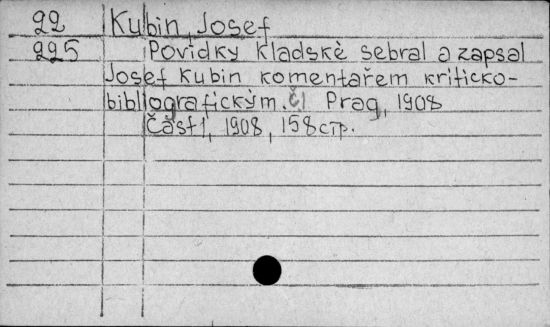 22 Kubin, Josef
225 Povidky Kladskè sebral a zapsal
Josef Kubin komentařem kriticko-
bibliografickým. Čl Prag, 1908
Část 1, 1908, 158 стр.